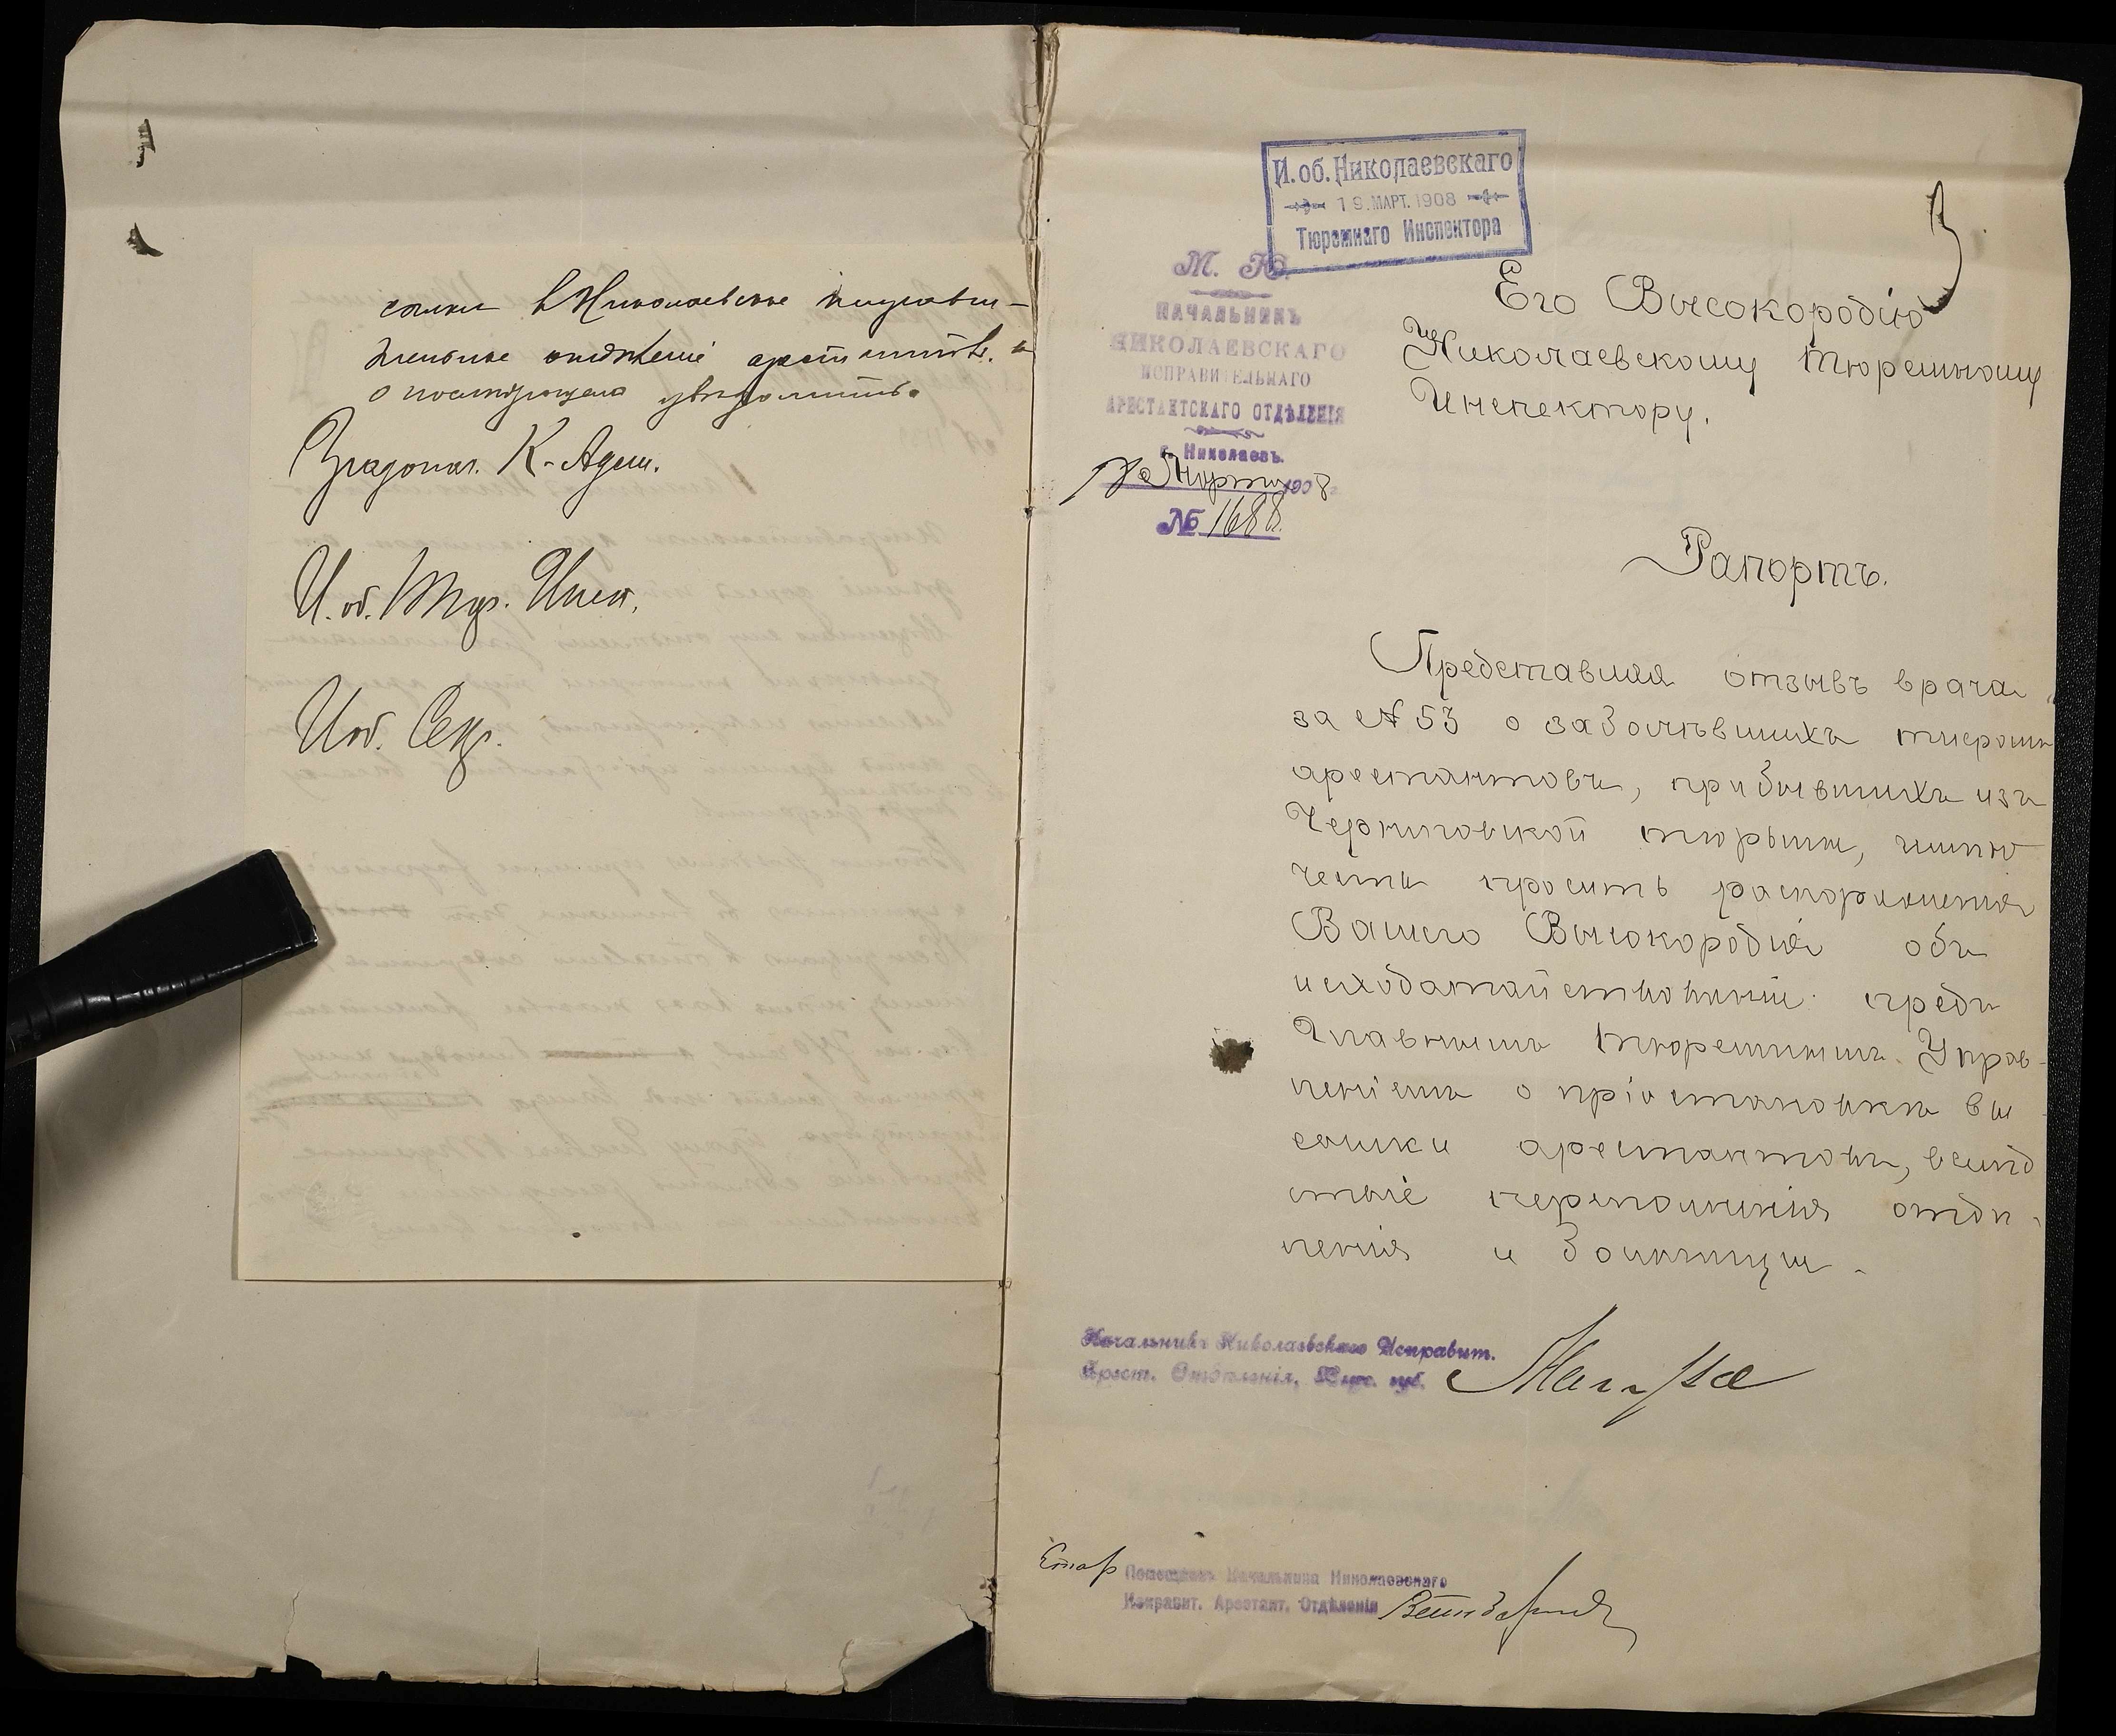 сылки в Николаевское исправи-
тельное отдѣленіе арестантовъ. и
о послѣдующемъ увѣдомить.
Градонач. К.-Адм.
И. об. Тюр. Инсп.
И об. Секр.
И. об. Николаевскаго
19. МАРТ. 1908
Тюремнаго Инспектора
3
М. Ю.
НАЧАЛЬНИКЪ
НИКОЛАЕВСКАГО
ИСПРАВИТЕЛЬНАГО
АРЕСТАНТСКАГО ОТДѢЛЕНІЯ
г. Николаевъ.
Марта 1908 г.
№ 1688.
Его Высокородію
Николаевскому Тюремному
Инспектору.
Рапортъ.
Представляя отзывъ врача
за № 53 о заболѣвшихъ тифомъ
арестантовъ, прибывшихъ изъ
Черниговской тюрьмы, имѣю
честь просить распоряженія
Вашего Высокородія объ
исходатайствованіи предъ
Главнымъ Тюремнымъ Управ-
леніемъ о пріостановкѣ вы
сылки арестантовъ, вслѣд
ствіе переполненія отдѣ-
ленія и больницы.
Начальникъ Николаевскаго Исправит.
Арест. Отдѣленія, Херс. губ.
Стар Помощникъ Начальника Николаевскаго
Исправит. Арестант. Отдѣленія